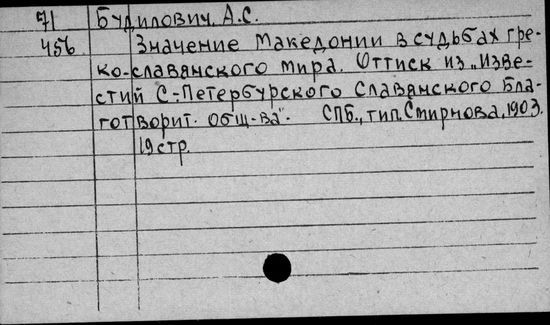 71 Будилович, А.С.
456 Значение Македонии в судьбах гре-
ко-славянского мира. Оттиск из „Изве-
стий С.-Петербургского Славянского Бла-
готворит. общ-ва". СПБ., тип. Смирнова, 1903.
19 стр.